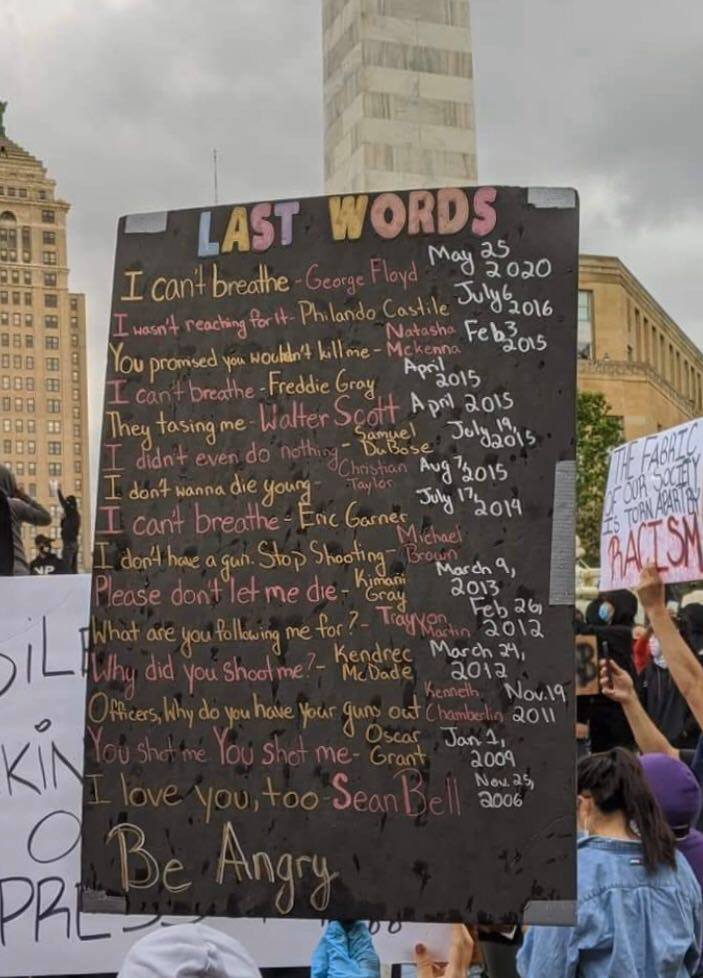 LAST WORDS
I can't breathe - George Floyd May 25 2020
I wasn't reaching for it - Philando Castile July 6 2016
You promised you wouldn't kill me - Natasha Mckenna Feb 3 2015
I can't breathe - Freddie Gray April 2015
They tasing me - Walter Scott April 2015
I didn't even do nothing - Samuel DuBose July 19, 2015
I don't wanna die young - Christian Taylor Aug 7, 2015
I can't breathe - Eric Garner July 17, 2014
I don't have a gun. Stop Shooting - Michael Brown
Please don't let me die - Kimani Gray March 9, 2013
What are you following me for? - Trayvon Martin Feb 26, 2012
Why did you shoot me? - Kendrec McDade March 24, 2012
Officers, Why do you have your guns out Kenneth Chamberlin Nov. 19 2011
You shot me You shot me - Oscar Grant Jan 1, 2009
I love you, too - Sean Bell Nov. 25, 2006
Be Angry
THE FABRIC
OF OUR SOCIETY
IS TORN APART BY
RACISM